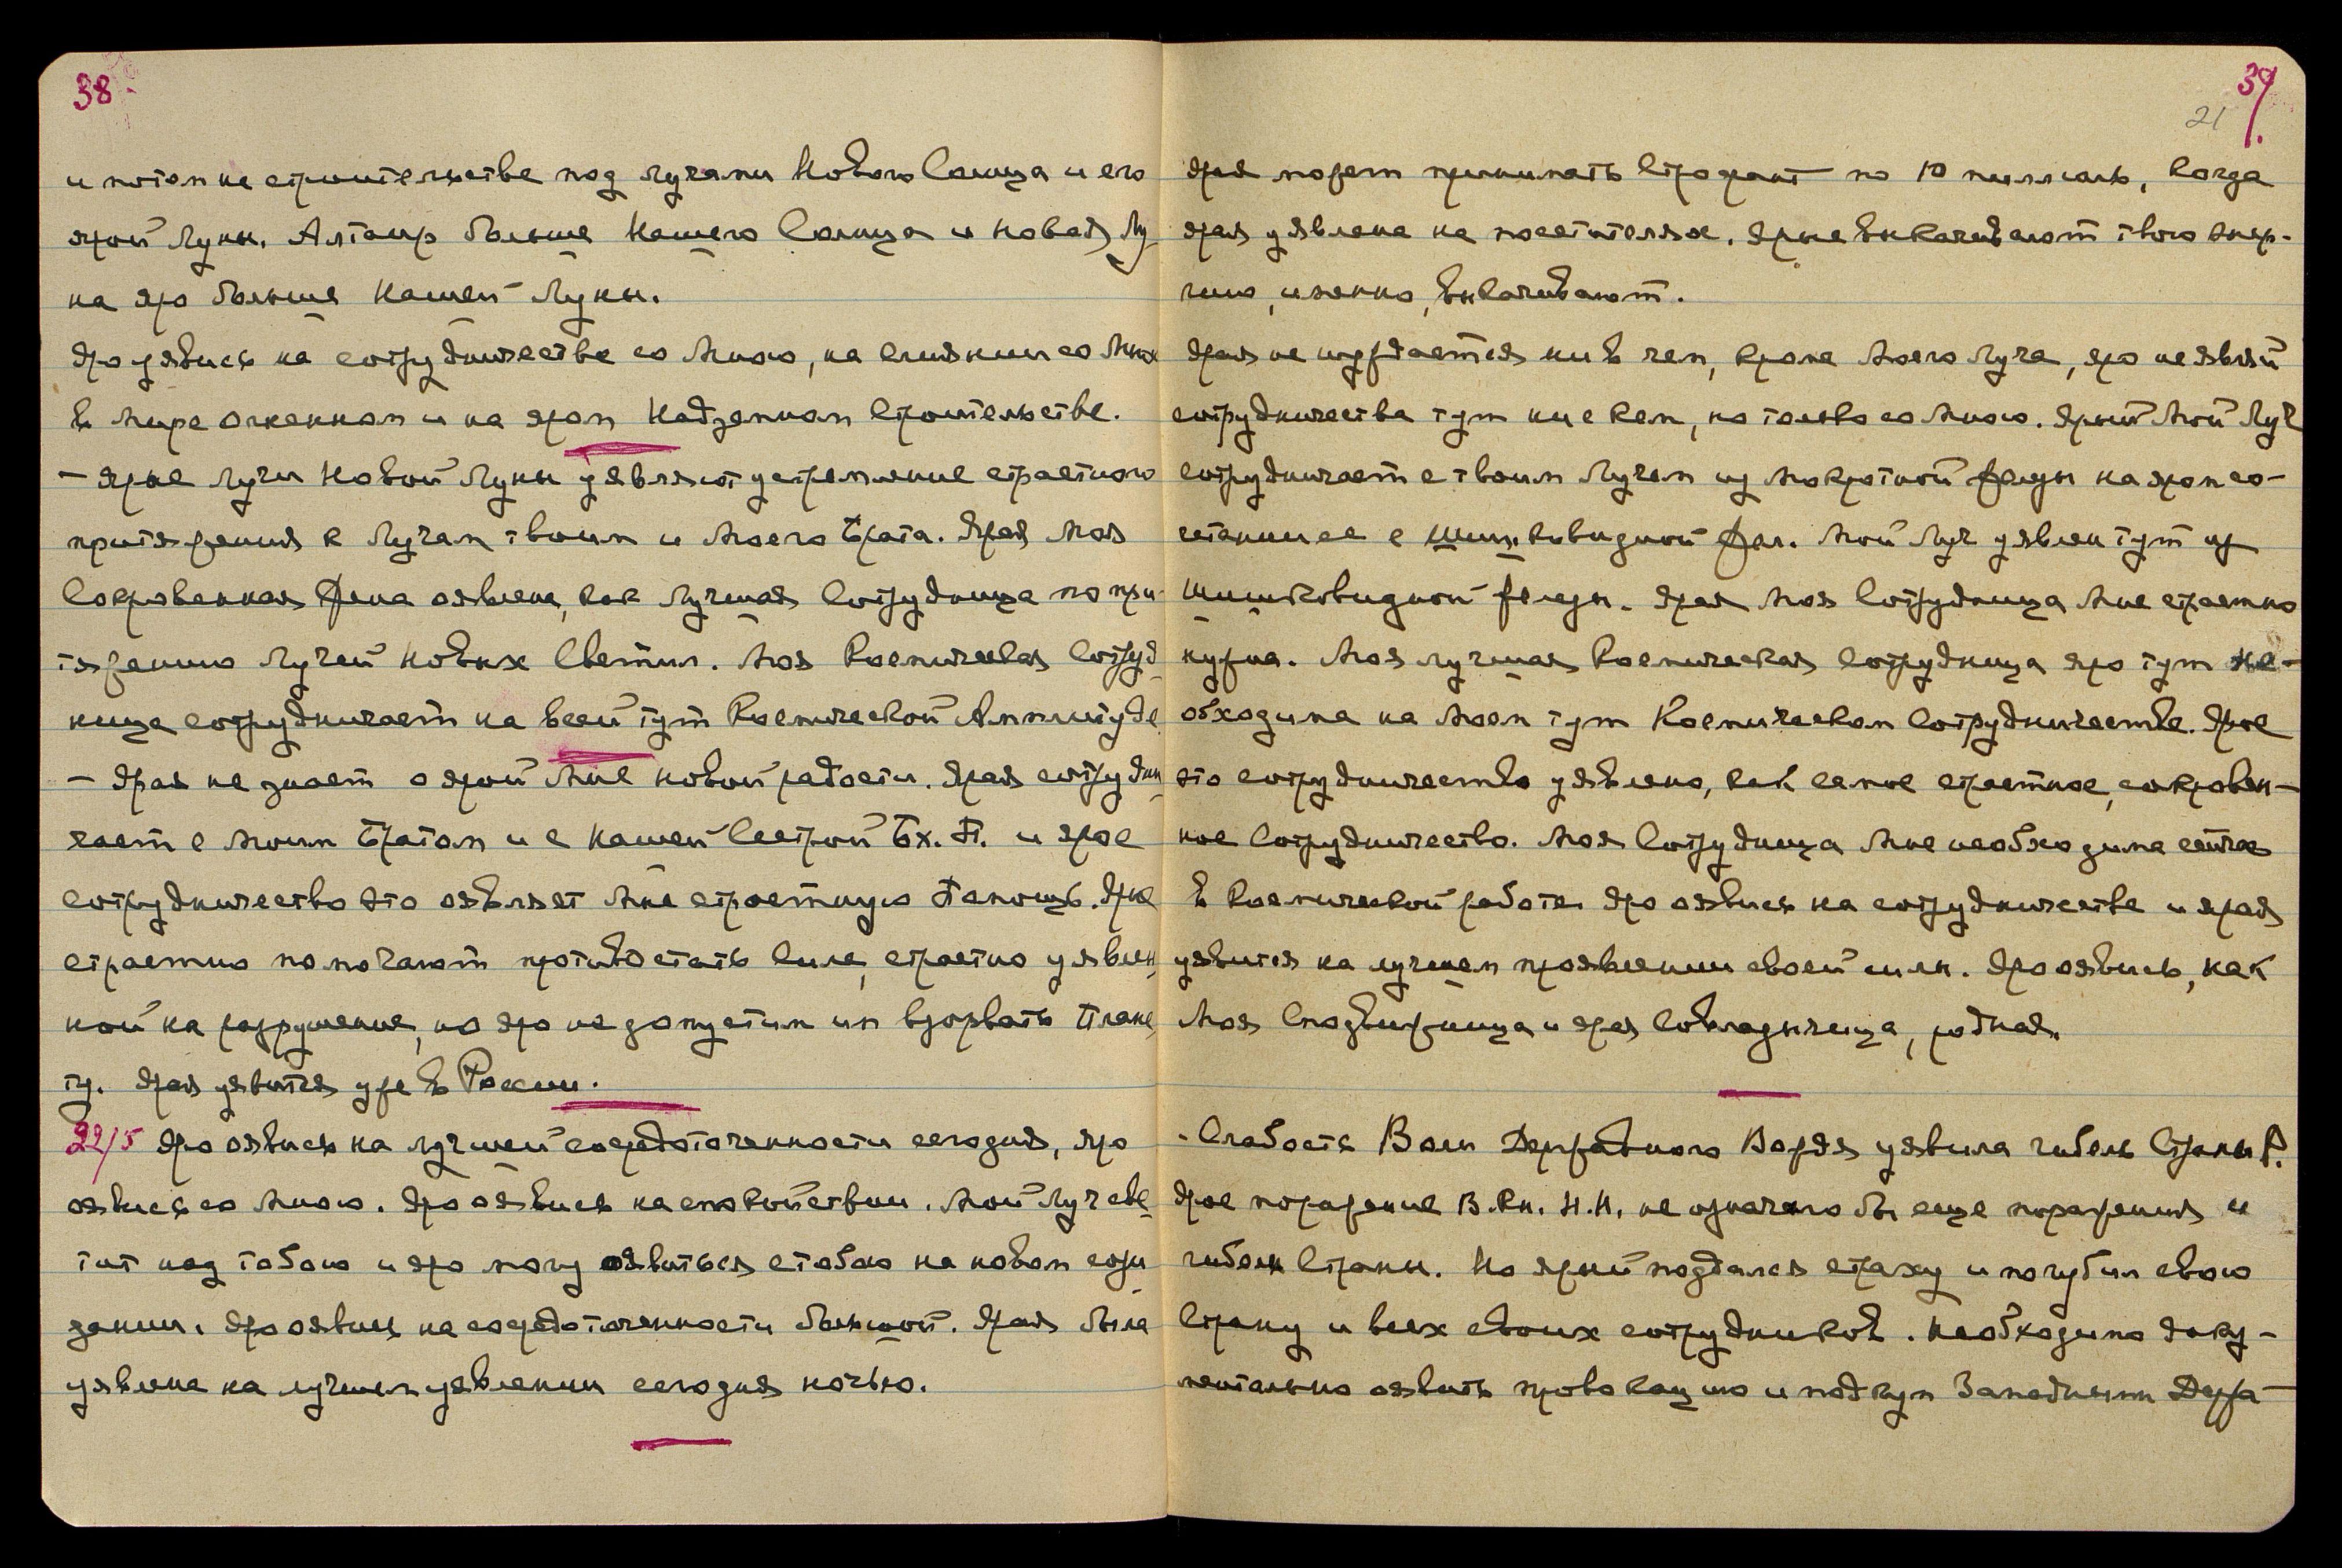 38.
и потом на строительстве под лучами Нового Солнца и его
ярой Луны. Алтаир больше Нашего Солнца и новая Лу
на яро больше Нашей Луны.
Яро уявись на сотрудничестве со Мною, на слиянии со Мною
в Мире огненном и на яром Надземном Строительстве.
— Ярые лучи Новой Луны уявляют устремление страстного
притяжения к Лучам твоим и Моего Брата. Ярая Моя
Сокровенная Жена оявлена, как лучшая Сотрудница по при-
тяжению лучей Новых Светил. Моя Космическая Сотруд
ница сотрудничает на всей тут Космической Амплитуде
— Ярая не знает о ярой Мне новой радости. Ярая сотрудни
чает с Моим Братом и с Нашей Сестрой Бл. П. и ярое
сотрудничество это оявляет Мне страстную Помощь. Ярые
страстно помогают противостать силе, страстно уявлен
ной на разрушение, но яро не допустим им взорвать Плане
ту. Ярая уявится уже в России.
22/5 Яро оявись на лучшей сосредоточенности сегодня, яро
оявись со Мною. Яро оявись на спокойствии. Мой Луч све
тит над тобою и яро могу оявиться с тобою на новом сози
дании. Яро оявись на сосредоточенности большой. Ярая была
уявлена на лучшем уявлении сегодня ночью.
39.
21
Ярая может принимать Строфант по 10 капель, когда
ярая уявлена на посетителях. Ярые выкачивают твою энер-
гию, именно, выкачивают.
Ярая не нуждается ни в чем, кроме Моего Луча, яро не являй
сотрудничества тут ни с кем, но только со Мною. Ярый Мой Луч
сотрудничает с твоим Лучем из Мокротной железы на яром со-
четании ее с шишковидной жел. Мой Луч уявлен тут из
шишковидной железы. Ярая Моя Сотрудница Мне страстно
нужна. Моя лучшая Космическая сотрудница яро тут не-
обходима на Моем тут Космическом Сотрудничестве. Ярое
это сотрудничество уявлено, как самое страстное, сокровен-
ное Сотрудничество. Моя Сотрудница Мне необходима сейчас
в Космической работе. Яро оявись на сотрудничестве и ярая
уявится на лучшем проявлении своей силы. Яро оявись, как
Моя Сподвижница и ярая Совладычица, родная.
- Слабость Воли Державного Вождя уявила гибель Страны Р.
Ярое поражение В. Кн. Н.Н. не означало бы еще поражения и
гибели Страны. Но ярый поддался страху и погубил свою
Страну и всех своих сотрудников. Необходимо доку-
ментально оявить провокацию и подкуп Западными Держа-